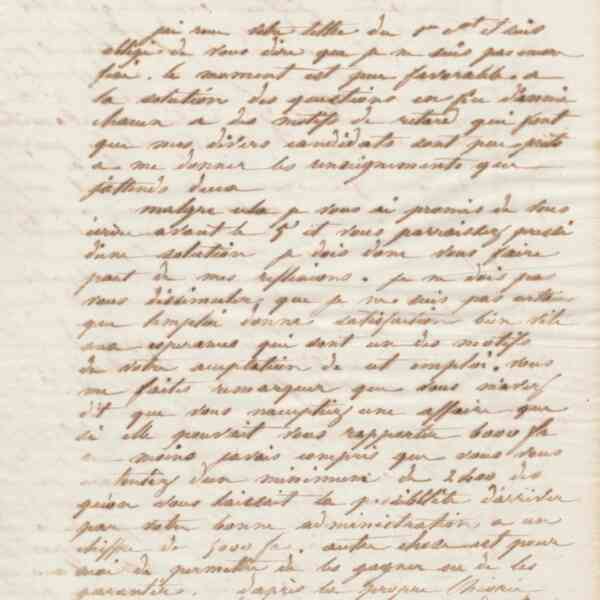 j'ai reçu votre lettre du 1er ct et suis
obligé de vous dire que je ne suis pas
fixé. le moment est peu favorable a
la solution des questions en fin d'année
chacun a des motifs de retard qui font
que mes divers candidats sont peu prets
a me donner les renseignements que
j'attends deux
malgre cela je vous ai promis de vous
écrire avant le 5 et vous parraissez pressé
d'une solution je dois donc vous faire
part de mes reflexions. je ne dois pas
vous dissimuler que je ne suis pas
que l'emploi donne satisfaction bien vite
aux esperances qui sont un des motifs
de votre acceptation de cet emploi. vous
me faites remarquer que vous m'avez
dit que vous n'acceptiez une affaire que
si elle pouvait vous rapporter 6000 f
moins j'avais compris que vous vous
d'un minimum de 2400 des
qu'on vous laissait la possibilité d'arriver
par votre bonne administration a un
chiffre de 5000 f. autre chose est pour
moi de permettre de les gagner ou de les
garantir. d'apres la propre